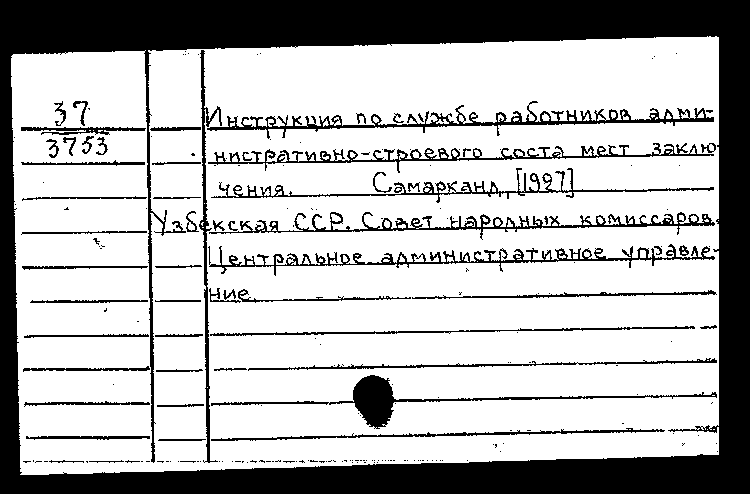 37
3753
Инструкция по службе работников адми-
нистративно-строевого соста мест заклю-
чения. Самарканд, [1927]
Узбекская ССР. Совет народных комиссаров.
Центральное административное управле-
ние.